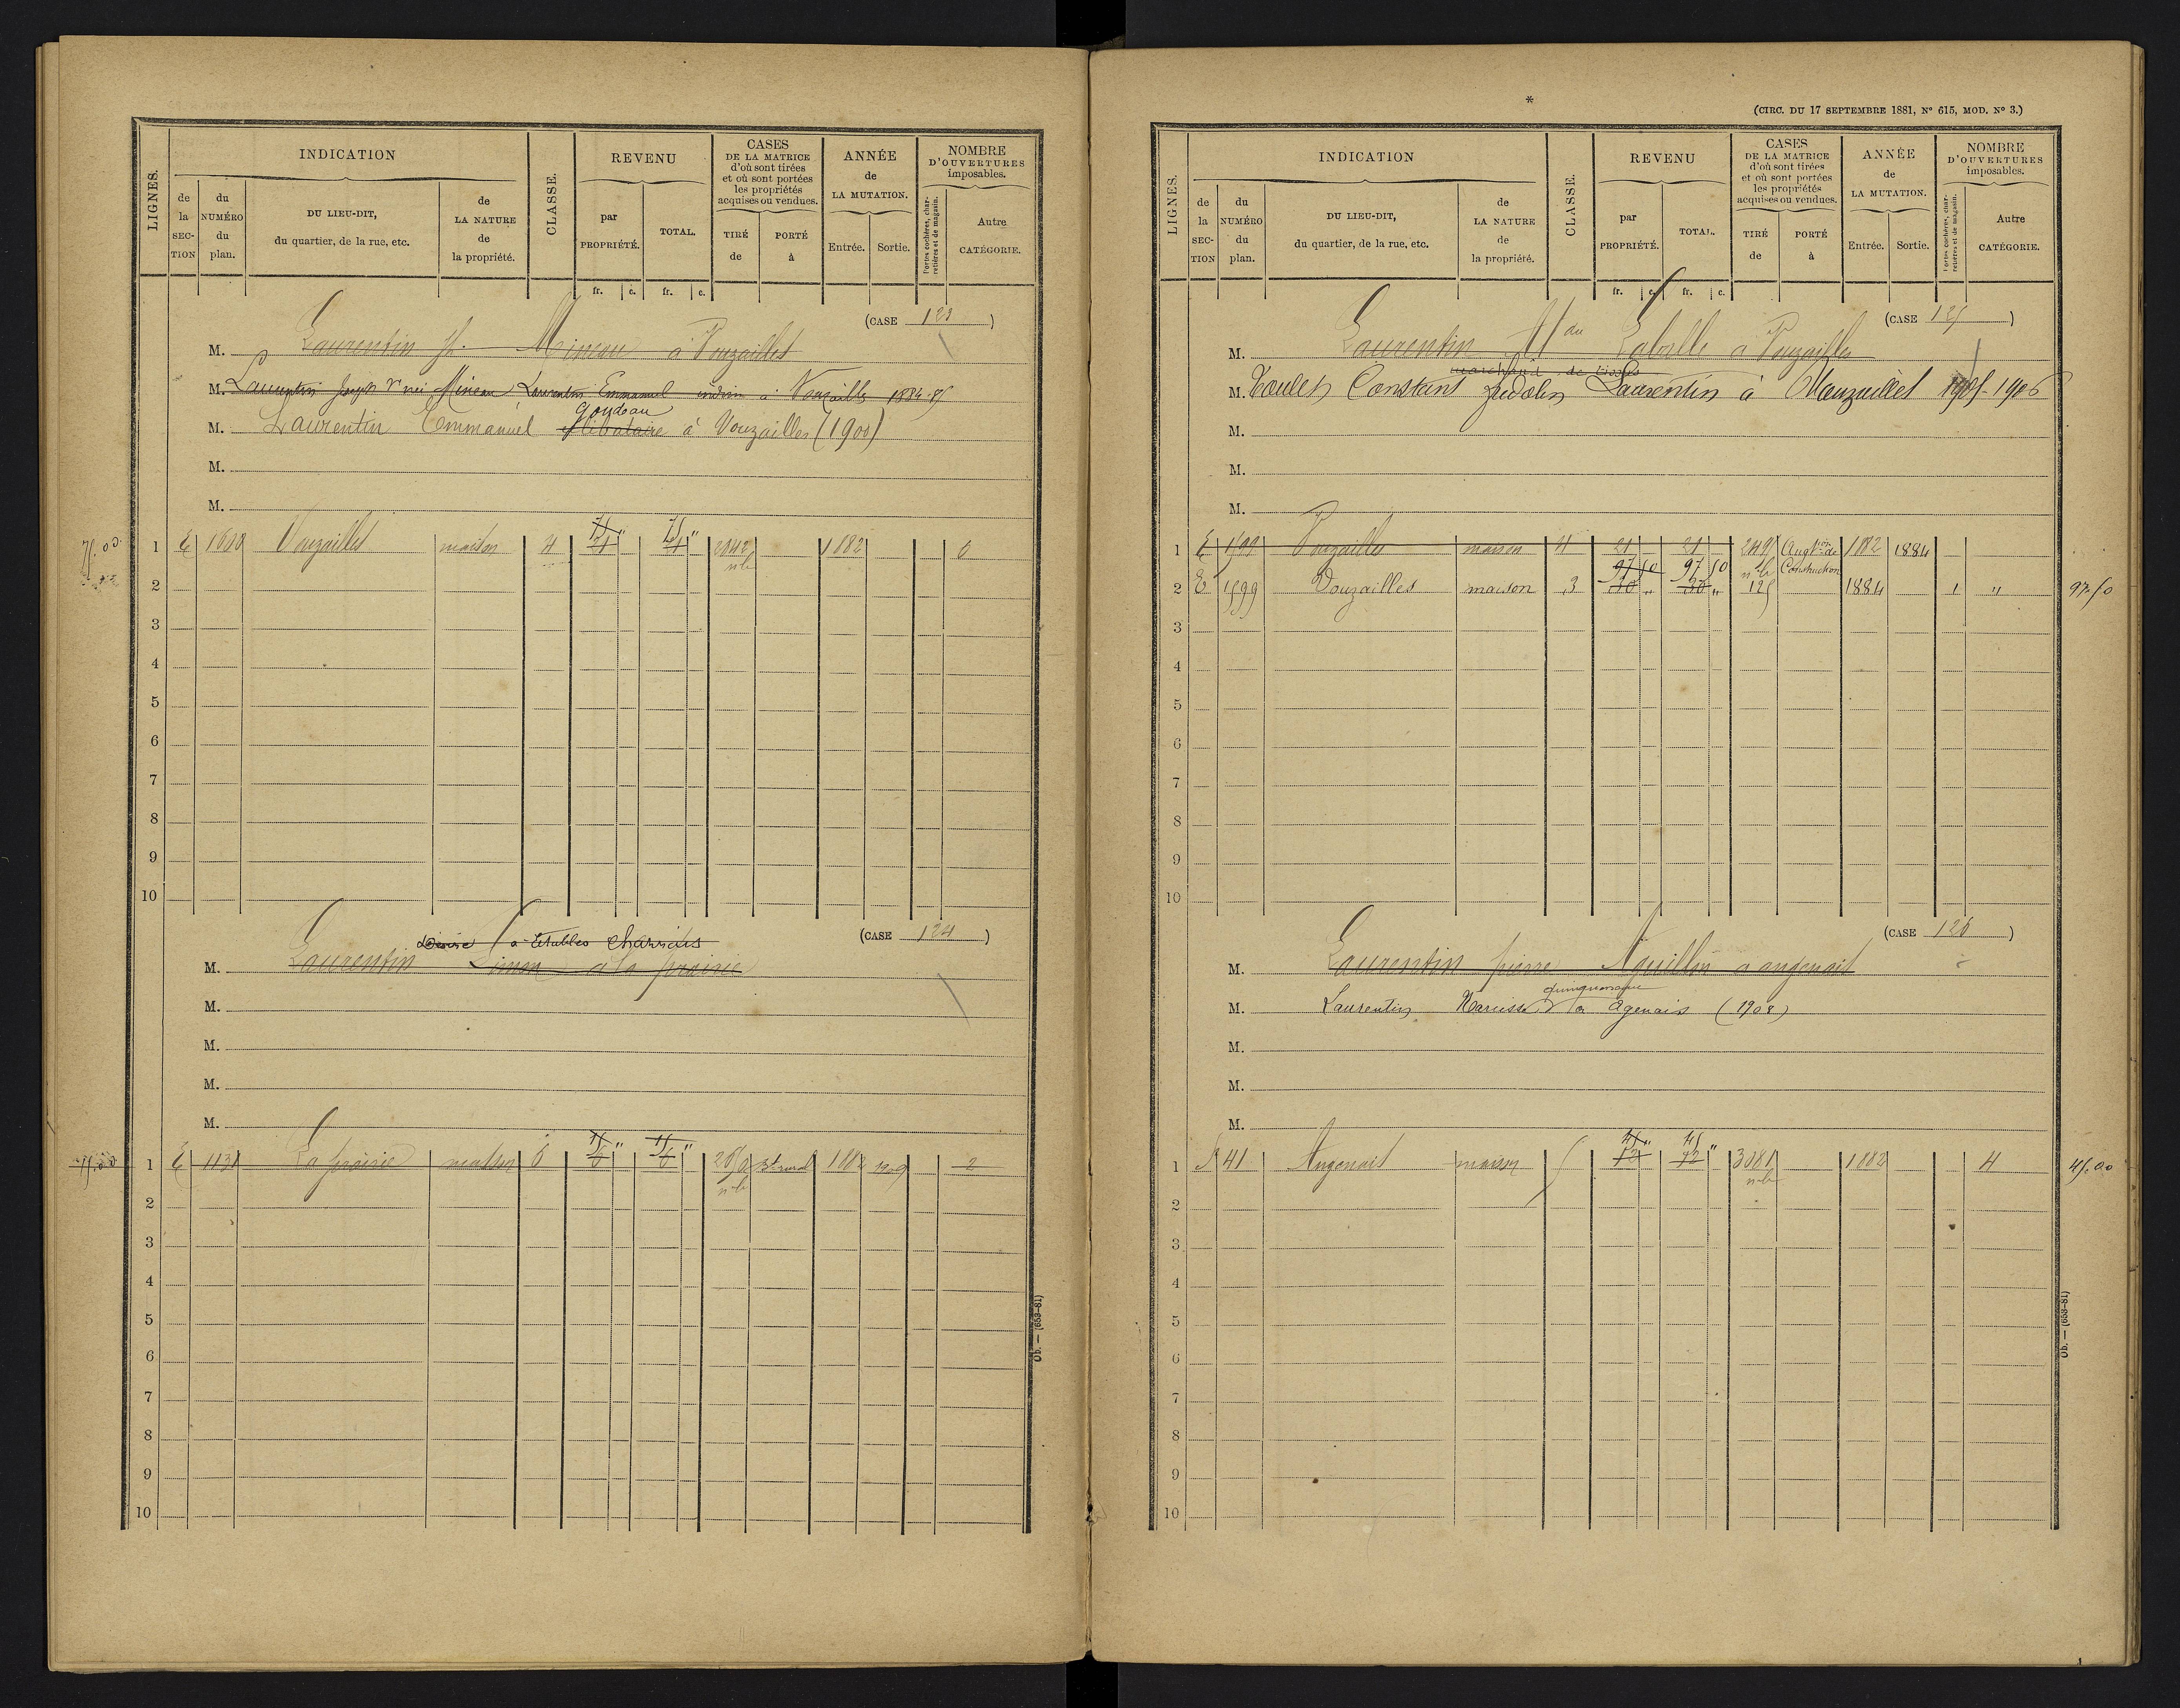 LIGNES.
INDICATION
de la SECTION
du NUMÉRO du plan.
DU LIEU-DIT,
du quartier, de la rue, etc.
de LA NATURE de la propriété.
CLASSE.
REVENU
par PROPRIÉTÉ.
TOTAL.
fr. c. fr. c.
CASES
DE LA MATRICE
d'où sont tirées
et où sont portées
les propriétés
acquises ou vendues.
TIRÉ de
PORTÉ à
ANNÉE
de
LA MUTATION.
Entrée. Sortie.
NOMBRE
D'OUVERTURES
imposables.
Portes cochères, charretières et de magasin.
Autre
CATÉGORIE.
(CASE 123)
M. Laurentin Mineau à Vouzailles
M. Laurentin Joseph Vve née Mineau Laurentin Emmanuel à Vouzailles
Goudeau
M. Laurentin Emmanuel célibataire à Vouzailles (1900)
M.
M.
75.00 1 E 1600 Vouzailles maison 4 75 " 75 " 2042 1882 6
21 21 n-b
2
3
4
5
6
7
8
9
10
(CASE 124)
à Etables Charrais
M. Laurentin à la prairie
M.
M.
M.
M.
1 E 1131 La prairie maison 6 15 " 15 " 2050 1882 1909 2
6 6 n-b
2
3
4
5
6
7
8
9
10
Ob. — (653-81)
*
(CIRC. DU 17 SEPTEMBRE 1881, N° 615, MOD. N° 3.)
LIGNES.
INDICATION
de la SECTION
du NUMÉRO du plan.
DU LIEU-DIT,
du quartier, de la rue, etc.
de LA NATURE de la propriété.
CLASSE.
REVENU
par PROPRIÉTÉ.
TOTAL.
fr. c. fr. c.
CASES
DE LA MATRICE
d'où sont tirées
et où sont portées
les propriétés
acquises ou vendues.
TIRÉ de
PORTÉ à
ANNÉE
de
LA MUTATION.
Entrée. Sortie.
NOMBRE
D'OUVERTURES
imposables.
Portes cochères, charretières et de magasin.
Autre
CATÉGORIE.
(CASE 125)
M. Laurentin à Vouzailles
marchand de tissus
M. Constant Laurentin à 1905-1906
M.
M.
M.
1 E 1599 Vouzailles maison 4 21 21 Augton de Construction 1882 1884
97 50 97 50 n-b
2 E 1599 Vouzailles maison 3 30 " 30 " 125 1884 1 " 97.50
3
4
5
6
7
8
9
10
(CASE 126)
M. Laurentin pierre Aguillon à angenait
M. Laurentin Narcisse à Agenais (1908)
M.
M.
M.
1 41 Angenait maison 5 45 " 45 " 3081 1882 4 45.00
12 12 n-b
2
3
4
5
6
7
8
9
10
Ob. — (653-81)